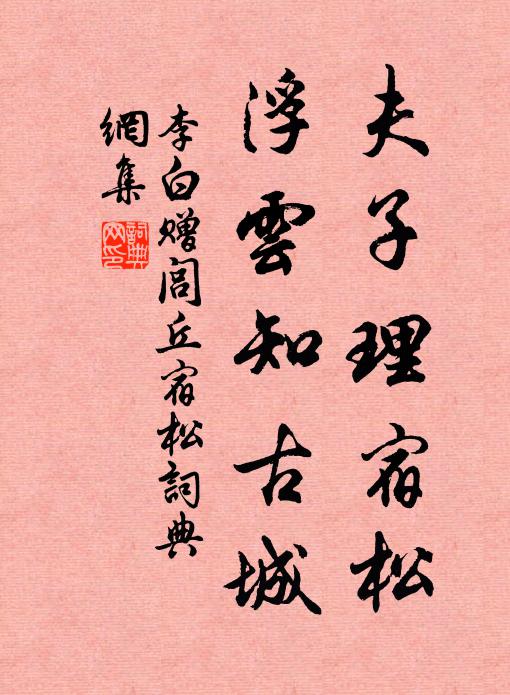 夫子理宿松
浮雲知古城
李白赠閭丘宿松詞典
網集
詞典
网印